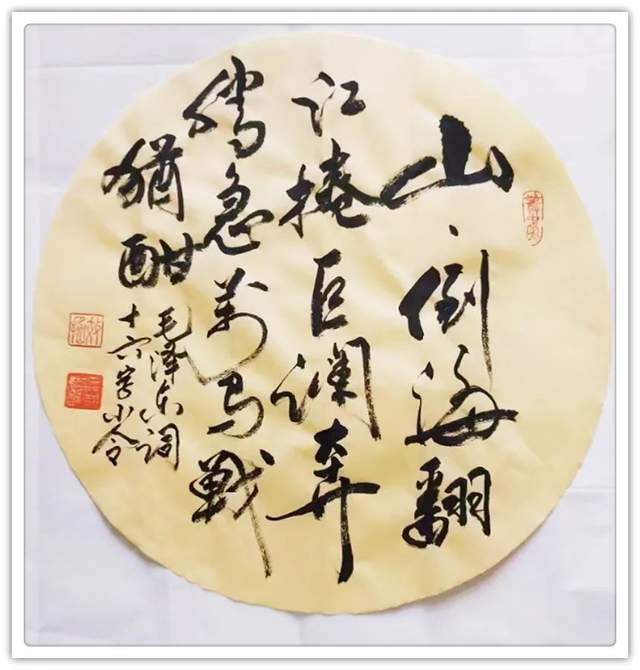 山、倒海翻
江捲巨澜奔
腾急萬马戰
猶酣
毛泽东词
十六字小令